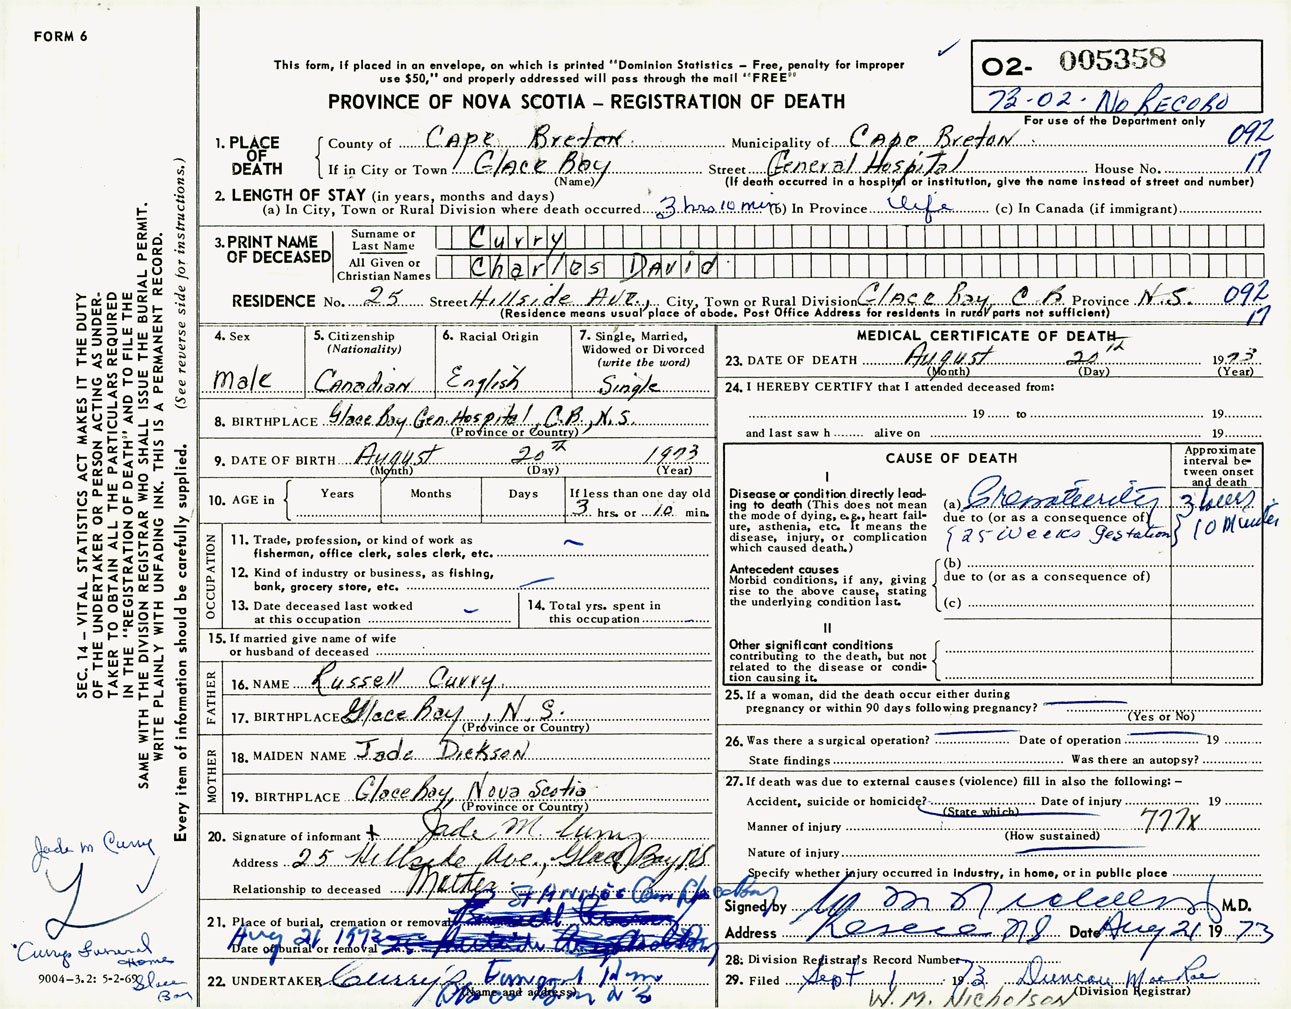 FORM 6
This form, if placed in an envelope, on which is printed "Dominion Statistics – Free, penalty for improper
use $50," and properly addressed will pass through the mail "FREE"
PROVINCE OF NOVA SCOTIA – REGISTRATION OF DEATH
O2- 005358
73-02- No RECORD
For use of the Department only
1. PLACE OF DEATH County of Cape Breton Municipality of Cape Breton 092
If in City or Town Glace Bay (Name) Street General Hospital House No. 17
(If death occurred in a hospital or institution, give the name instead of street and number)
2. LENGTH OF STAY (in years, months and days)
(a) In City, Town or Rural Division where death occurred 3 hrs 10 min (b) In Province life (c) In Canada (if immigrant)
3. PRINT NAME OF DECEASED
Surname or Last Name Curry
All Given or Christian Names Charles David
RESIDENCE No. 25 Street Hillside Ave., City, Town or Rural Division Glace Bay, C B Province N.S. 092
(Residence means usual place of abode. Post Office Address for residents in rural parts not sufficient) 17
4. Sex
Male
5. Citizenship (Nationality)
Canadian
6. Racial Origin
English
7. Single, Married, Widowed or Divorced (write the word)
Single
8. BIRTHPLACE Glace Bay Gen. Hospital, C.B., N.S.
(Province or Country)
9. DATE OF BIRTH August 20th 1973
(Month) (Day) (Year)
10. AGE in Years Months Days If less than one day old
3 hrs. or 10 min.
OCCUPATION
11. Trade, profession, or kind of work as
fisherman, office clerk, sales clerk, etc.
12. Kind of industry or business, as fishing,
bank, grocery store, etc.
13. Date deceased last worked
at this occupation
14. Total yrs. spent in
this occupation
15. If married give name of wife
or husband of deceased
FATHER
16. NAME Russell Curry
17. BIRTHPLACE Glace Bay, N.S.
(Province or Country)
MOTHER
18. MAIDEN NAME Jade Dickson
19. BIRTHPLACE Glace Bay, Nova Scotia
(Province or Country)
20. Signature of informant Jade M. Curry
Address 25 Hillside Ave., Glace Bay, N.S.
Relationship to deceased Mother
21. Place of burial, cremation or removal
Date of burial or removal Aug 21 1973
22. UNDERTAKER Curry's
(Name and address)
MEDICAL CERTIFICATE OF DEATH
23. DATE OF DEATH August 20th 1973
(Month) (Day) (Year)
24. I HEREBY CERTIFY that I attended deceased from:
19 to 19
and last saw h alive on 19
CAUSE OF DEATH
Approximate interval between onset and death
I
Disease or condition directly leading to death (This does not mean the mode of dying, e.g., heart failure, asthenia, etc. It means the disease, injury, or complication which caused death.)
(a) Prematurity 3 hours
due to (or as a consequence of) 10 Minutes
25 Weeks gestation
Antecedent causes
Morbid conditions, if any, giving rise to the above cause, stating the underlying condition last.
(b)
due to (or as a consequence of)
(c)
II
Other significant conditions
contributing to the death, but not related to the disease or condition causing it.
25. If a woman, did the death occur either during
pregnancy or within 90 days following pregnancy?
(Yes or No)
26. Was there a surgical operation? Date of operation 19
State findings Was there an autopsy?
27. If death was due to external causes (violence) fill in also the following: –
Accident, suicide or homicide? Date of injury 19
(State which)
Manner of injury 777x
(How sustained)
Nature of injury
Specify whether injury occurred in industry, in home, or in public place
Signed by M.D.
Address Reserve NS Date Aug 21 1973
28. Division Registrar's Record Number
29. Filed Sept 1 1973 Duncan MacRae
(Division Registrar)
W. M. NICHOLSON
SEC. 14 – VITAL STATISTICS ACT MAKES IT THE DUTY
OF THE UNDERTAKER OR PERSON ACTING AS UNDER-
TAKER TO OBTAIN ALL THE PARTICULARS REQUIRED
IN THE "REGISTRATION OF DEATH" AND TO FILE THE
SAME WITH THE DIVISION REGISTRAR WHO SHALL ISSUE THE BURIAL PERMIT.
WRITE PLAINLY WITH UNFADING INK. THIS IS A PERMANENT RECORD.
Every item of information should be carefully supplied. (See reverse side for instructions.)
Jade M Curry
Currys Funeral
Home
Glace
Bay
9004-3.2: 5-2-69